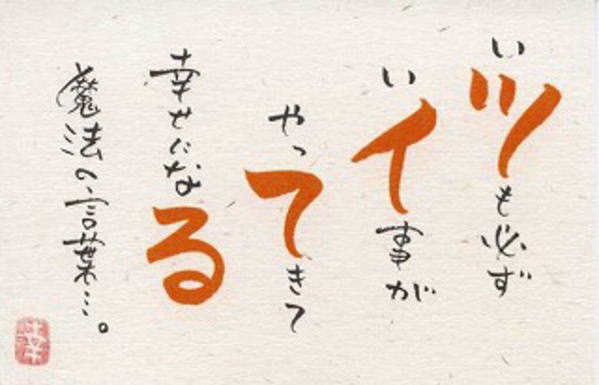 いツも必ず
いイ事が
やってきて
幸せになる
魔法の言葉…。
幸